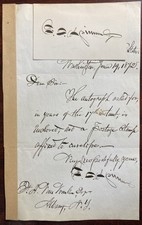 Washington, June 19, 1872.
Dear Sir:
The autograph asked for,
in yours of the 17th instant, is
inclosed, and a postage stamp
affixed to envelope.
Very respectfully yours,
Albany, N.Y.